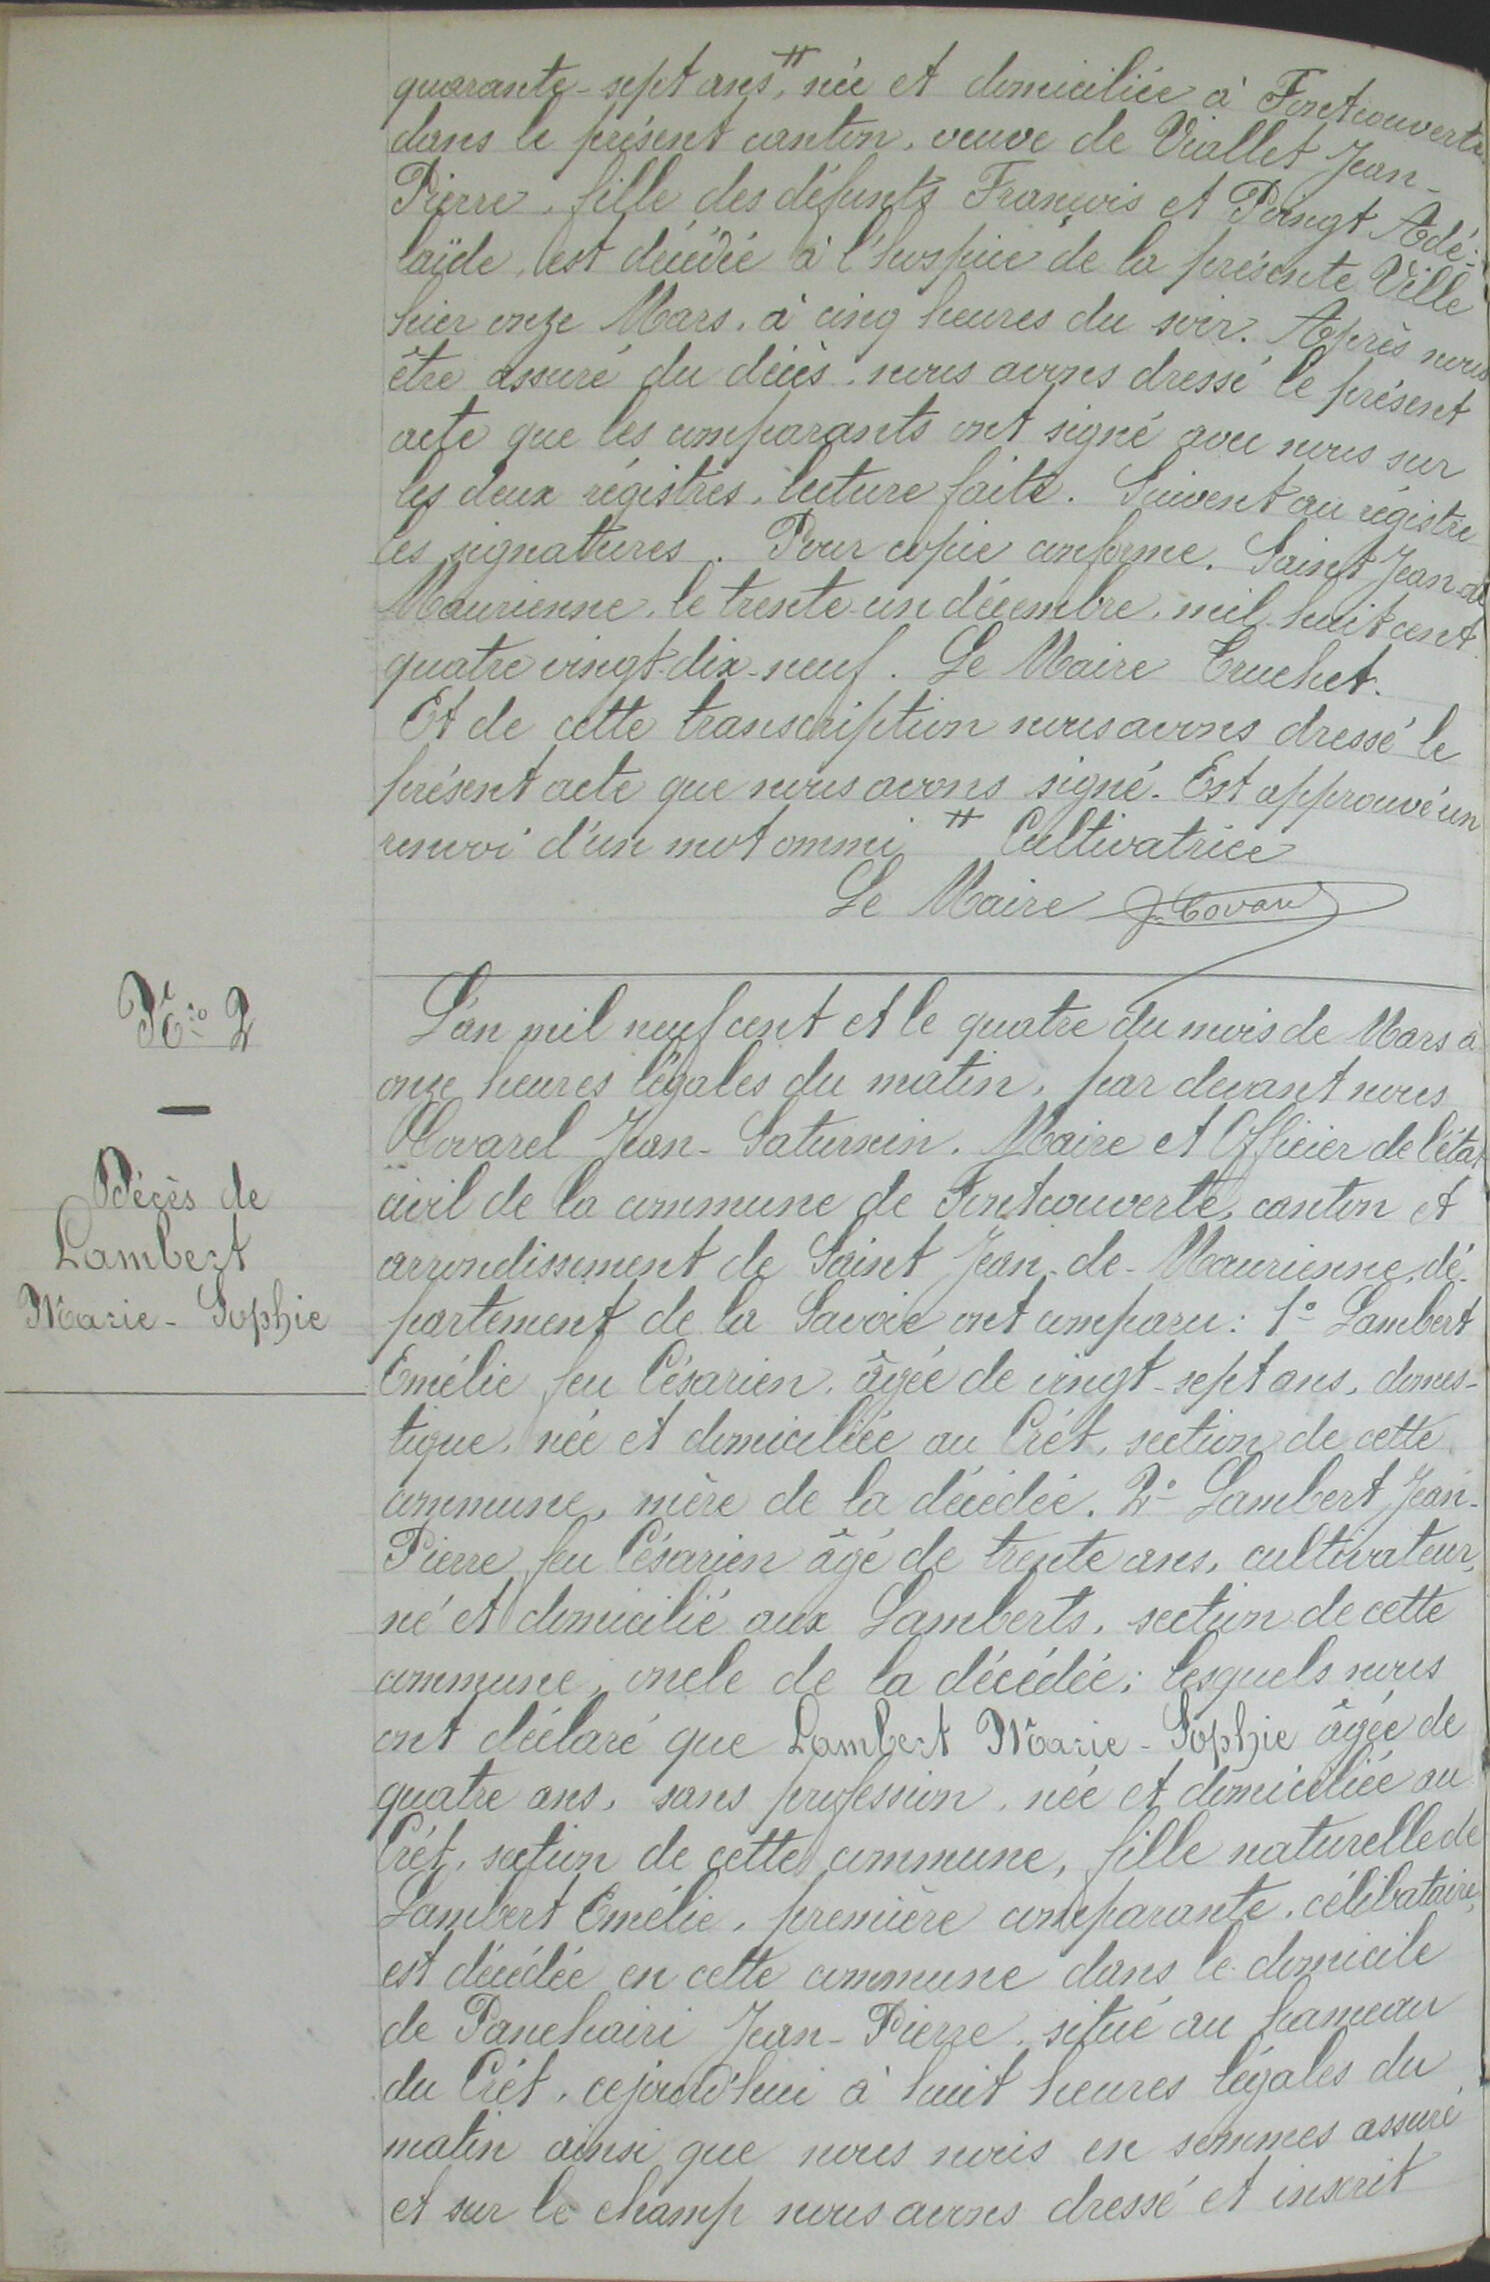 quarante-sept ans, # née et domiciliée à Fontcouverte
dans le présent canton, veuve de Viallet Jean-
Pierre, fille des défunts François et Poingt Adé-
laïde, est décédée à l'hospice de la présente Ville
hier onze Mars, à cinq heures du soir. Après nous
être assuré du décès, nous avons dressé le présent
acte que les comparants ont signé avec nous sur
les deux régistres, lecture faite. Suivent au régistre
les signatures. Pour copie conforme. Saint Jean de
Maurienne, le trente-un décembre, mil-huit cent
quatre vingt-dix-neuf. Le Maire Truchet.
Et de cette transcription nous avons dressé le
présent acte que nous avons signé. Est approuvé un
renvoi d'un mot ommi # Cultivatrice
Le Maire J. Covarel
N.ro 2
Décès de
Lambert
Marie-Sophie
L'an mil neuf cent et le quatre du mois de Mars à
onze heures légales du matin, par devant nous
Covarel Jean-Saturnin, Maire et Officier de l'état
civil de la commune de Fontcouverte, canton et
arrondissement de Saint Jean-de-Maurienne, dé-
partement de la Savoie ont comparu: 1° Lambert
Emélie feu Césarien, âgée de vingt-sept ans, domes-
tique, née et domiciliée au Crét, section de cette
commune, mère de la décédée. 2° Lambert Jean-
Pierre feu Césarien âgé de trente ans, cultivateur,
né et domicilié aux Lamberts, section de cette
commune, oncle de la décédée; lesquels nous
ont déclaré que Lambert Marie-Sophie âgée de
quatre ans, sans profession, née et domiciliée au
Crét, section de cette commune, fille naturelle de
Lambert Emélie, première comparante, célibataire,
est décédée en cette commune dans le domicile
de Panchairi Jean-Pierre, situé au hameau
du Crét, cejourd'hui à huit heures légales du
matin ainsi que nous nous en sommes assuré
et sur le champ nous avons dressé et inscrit